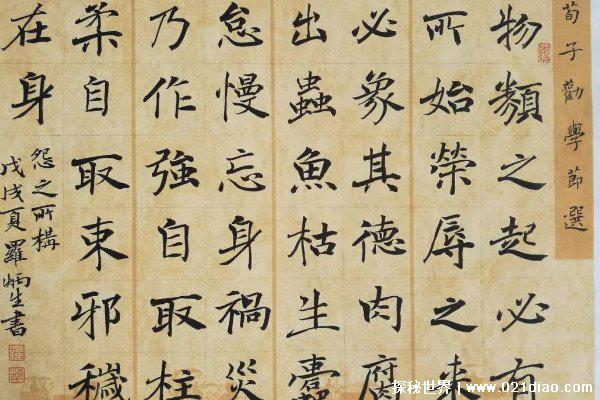 荀子勸學節選
物類之起必有
所始榮辱之來
必象其德肉腐
出蟲魚枯生蠹
怠慢忘身禍災
乃作強自取柱
柔自取束邪穢
在身
怨之所構
戊戌夏羅炳生書
探秘世界 | www.021diao.com